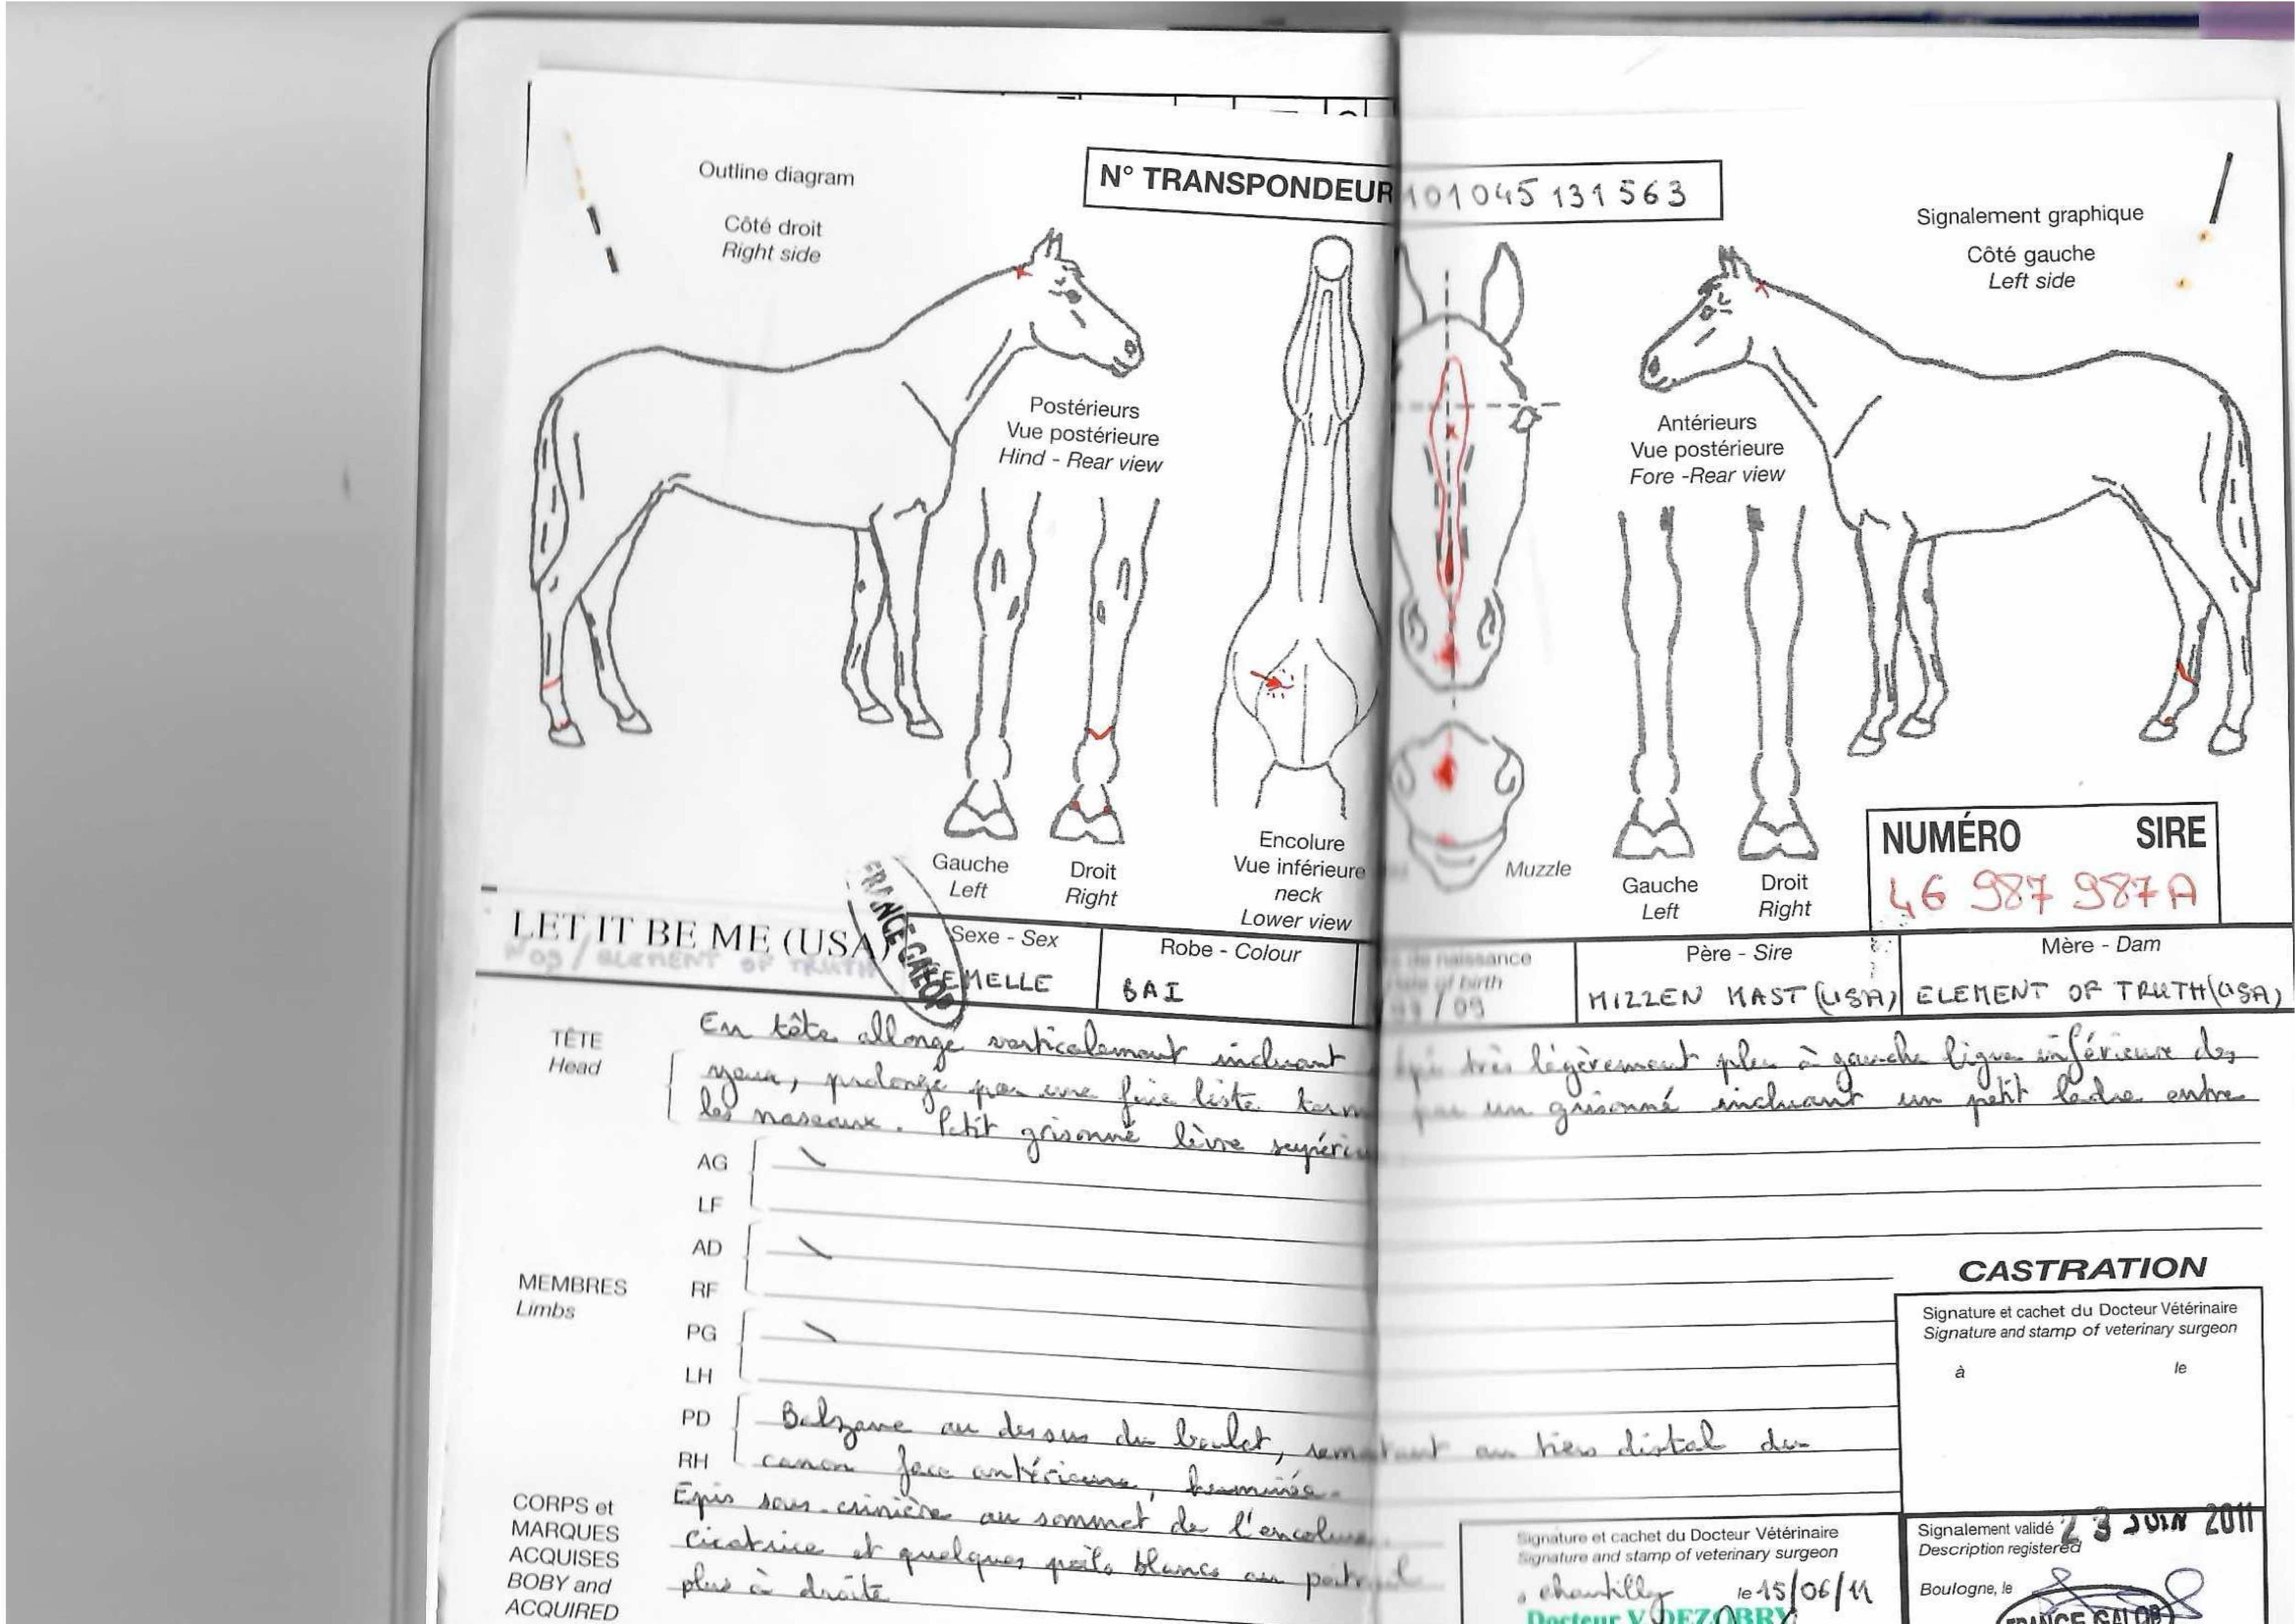 Outline diagram
Côté droit
Right side
N° TRANSPONDEUR 101045 131563
Signalement graphique
Côté gauche
Left side
Postérieurs
Vue postérieure
Hind - Rear view
Antérieurs
Vue postérieure
Fore -Rear view
Gauche
Left
Droit
Right
Encolure
Vue inférieure
neck
Lower view
Muzzle
Gauche
Left
Droit
Right
NUMÉRO SIRE
46 987 987 A
LET IT BE ME (USA)
ELEMENT OF TRUTH
FRANCE GALOP
Sexe - Sex
FEMELLE
Robe - Colour
BAI
naissance
of birth
/ 09
Père - Sire
MIZZEN MAST (USA)
Mère - Dam
ELEMENT OF TRUTH (USA)
TÊTE
Head
En tête allongé verticalement incluant épi très légèrement plus à gauche ligne inférieure des
yeux, prolongé par une fine liste term par un grisonné incluant un petit ladre entre
les naseaux. Petit grisonné lèvre supérieu
MEMBRES
Limbs
AG
LF
AD
RF
PG
LH
PD
RH
Balzane au dessus du boulet, remontant au tiers distal du
canon face antérieure, herminée.
CORPS et
MARQUES
ACQUISES
BOBY and
ACQUIRED
Epis sous-crinière au sommet de l'encolure.
Cicatrice et quelques poils blancs au poitrail
plus à droite
CASTRATION
Signature et cachet du Docteur Vétérinaire
Signature and stamp of veterinary surgeon
à le
Signature et cachet du Docteur Vétérinaire
Signature and stamp of veterinary surgeon
à chantilly le 15/06/11
Docteur V. DEZOBRY
Signalement validé 23 JUIN 2011
Description registered
Boulogne, le
FRANCE GALOP